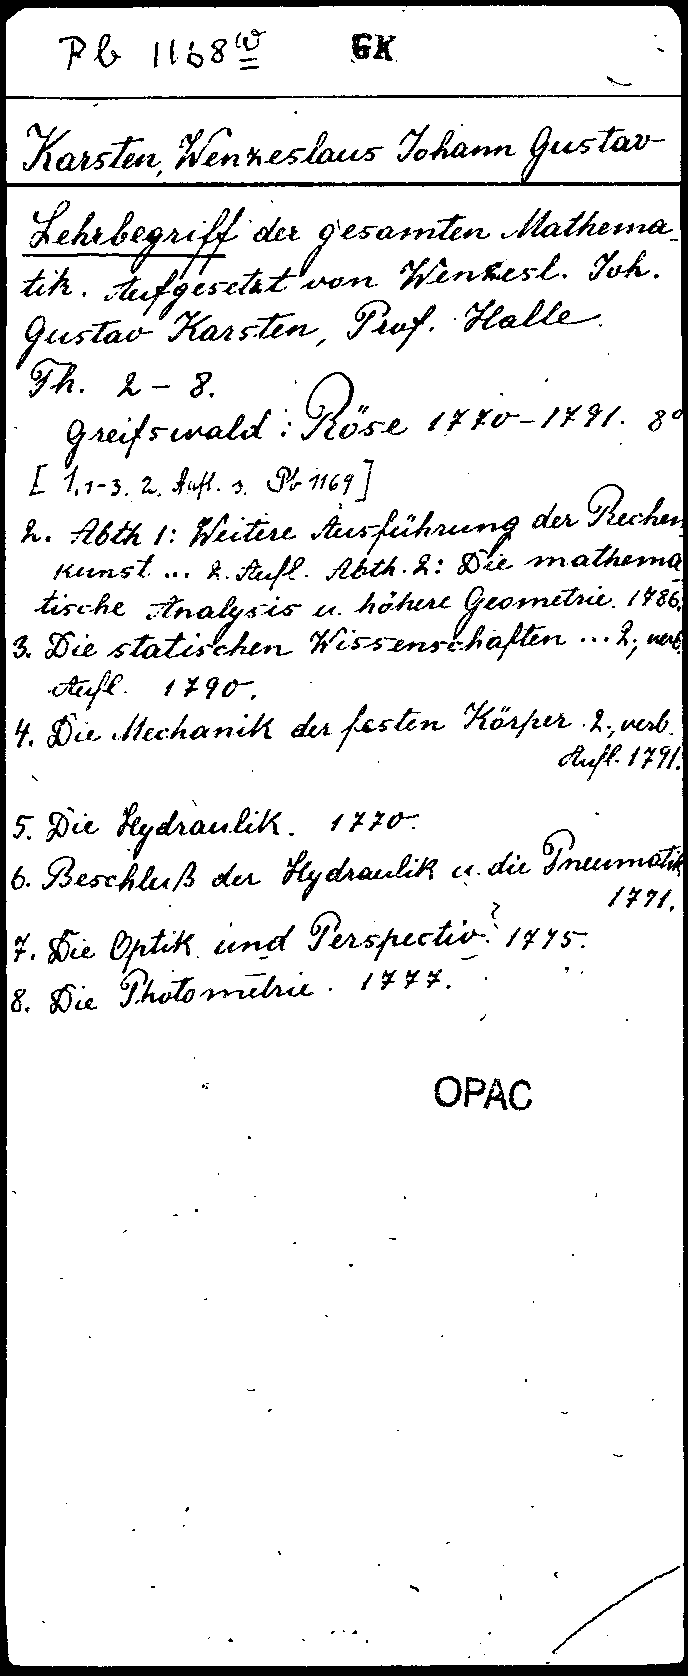 Pb 1168 w GK
Karsten, Wenzeslaus Johann Gustav
Lehrbegriff der gesamten Mathema-
tik. Aufgesetzt von Wenzesl. Joh.
Gustav Karsten, Prof. Halle.
Th. 2 - 8.
Greifswald: Röse 1770-1791. 8°
[1,1-3. 2. Aufl. s. Pb 1169]
2. Abth 1: Weitere Ausführung der Rechen
kunst ... 2. Aufl. Abth. 2: Die mathema
tische Analysis u. höhere Geometrie. 1786.
3. Die statischen Wissenschaften ... 2., verb.
Aufl. 1790.
4. Die Mechanik der festen Körper. 2., verb.
Aufl. 1791.
5. Die Hydraulik. 1770.
6. Beschluß der Hydraulik u. die Pneumatik
1771.
7. Die Optik und Perspectiv. ? 1775.
8. Die Photometrie. 1777.
OPAC